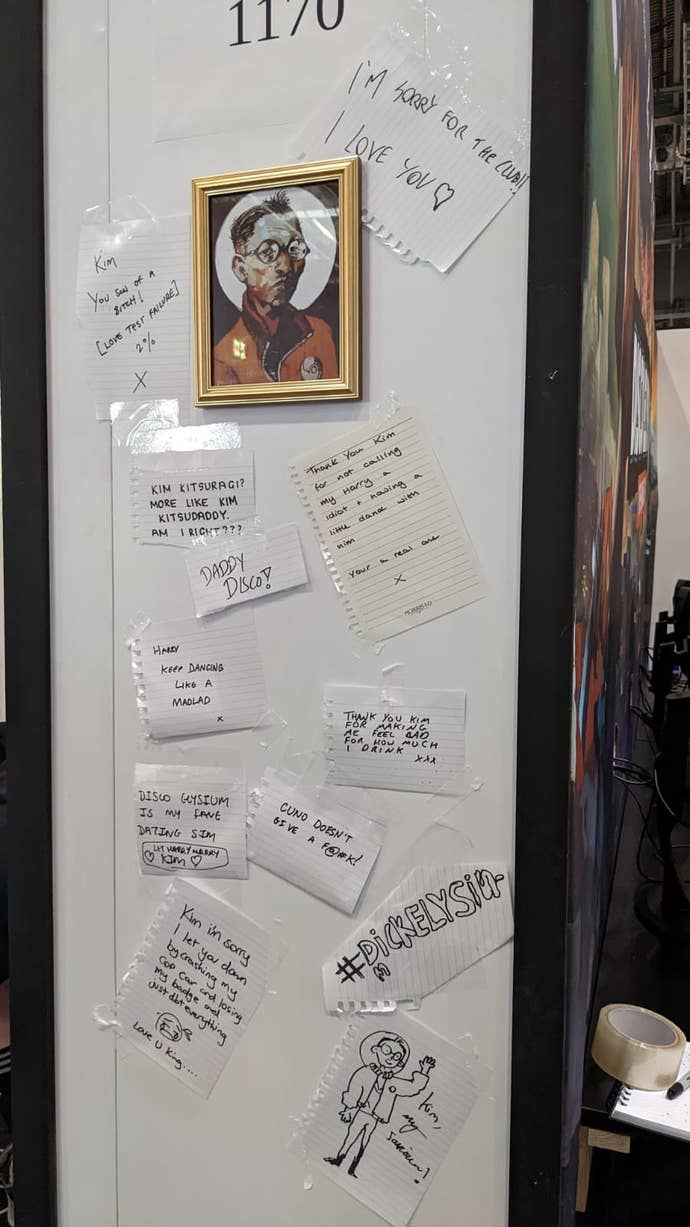 1170
I'M SORRY FOR THE CLUB!!
I LOVE YOU ♡
Kim
You SON OF A
BITCH!
[LOVE TEST FAILURE]
2%
X
KIM KITSURAGI?
MORE LIKE KIM
KITSUDADDY.
AM I RIGHT???
Thank You Kim
for not calling
my Harry a
idiot + having a
little dance with
him
Your a real one
X
DADDY
DISCO!
HARRY
KEEP DANCING
LIKE A
MADLAD
x
THANK YOU KIM
FOR MAKING
ME FEEL BAD
FOR HOW MUCH
I DRINK
xxx
DISCO ELYSIUM
IS MY FAVE
DATING SIM
LET HARRY MARRY
♡ KIM ♡
CUNO DOESN'T
GIVE A F@#K!
#DICKELYSIUM
Kim im sorry
I let you down
by crashing my
cop car and losing
my badge and
just abt everything
Love u King....
Kim,
my
saviour!